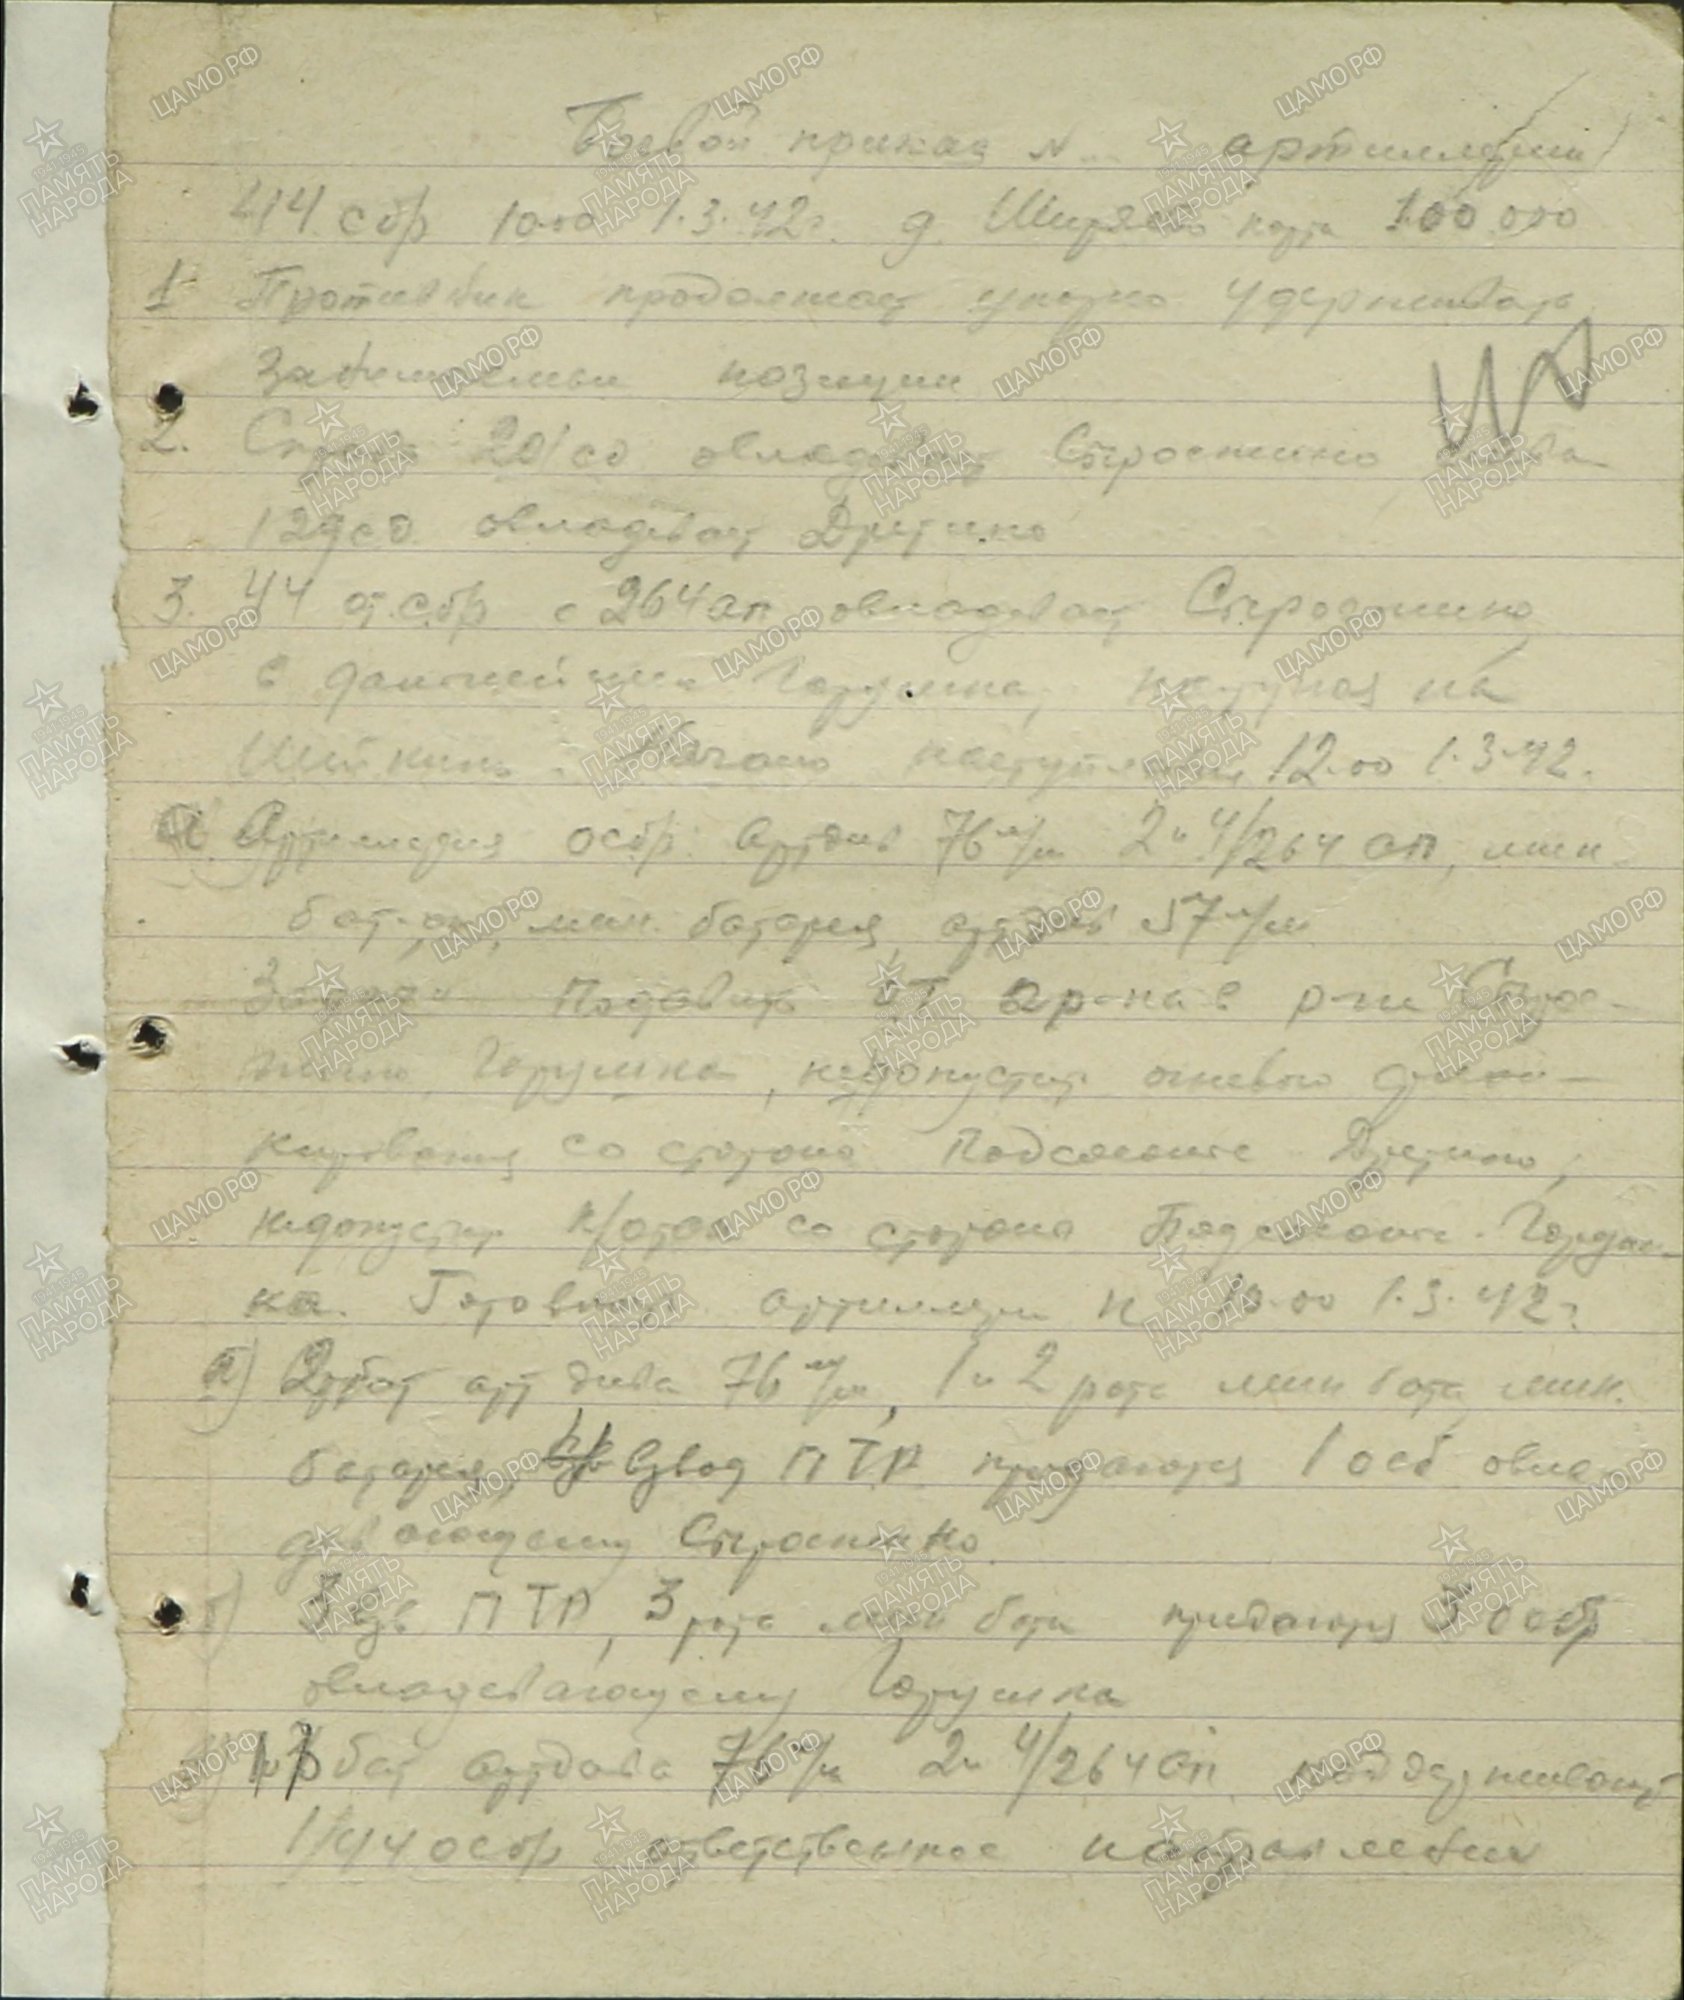 Боевой приказ № артиллерии
44 сбр 10.00 1.3.42г. д. Ширяево карта 100.000
1 Противник продолжает упорно удерживать
занимаемые позиции
2. Справа 201 сд овладевает Сыроежино слева
129 сд овладевает Дретино
3. 44 от. сбр с 264 ап овладевает Сыроежино
в дальнейшем Горушка, наступая на
Шейкино. Начало наступления 12.00 1.3.42.
Артиллерия осбр. Артдив 76 м/м 2 и 4/264 ап, мин.
бат-он, мин. батарея, артдив 57 м/м
Задачи Подавить ОТ пр-ка в р-не Сырое-
жино, Горушка, недопустить огневого флан-
кирования со стороны Подсосонье Дретино,
недопустить к/атак со стороны Подсосонье.
ка. Готовность артиллерии к 10.00 1.3.42г.
а) 2 бат артдива 76 м/м, 1 и 2 рота мин бата, мин.
батарея, взвод ПТР придаются 1 осб овла-
девающему Сыроежино.
б) 3 взв ПТР, 3 рота мин бата придаются 3 оосб
овладевающему Горушка
бат артдива 76 м/м 2 и 4/264 ап поддерживают
1/44 осбр ответственное направление